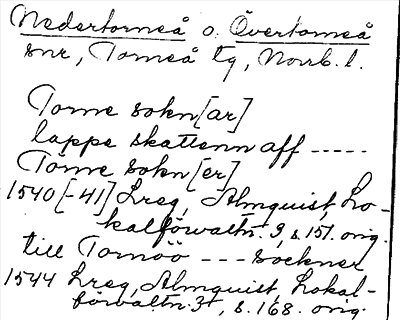 Nedertorneå o. Övertorneå
snr, Torneå tg, Norrb. l.
Torne sokn[ar]
lappe skattenn aff -----
Torne sokn[er]
1540[-41] Lreg, Almquist, Lo-
kalförvaltn. 3, s. 151. orig.
till Tornöö --- sockner
1544 Lreg, Almquist, Lokal-
förvaltn. 3, s. 168. orig.